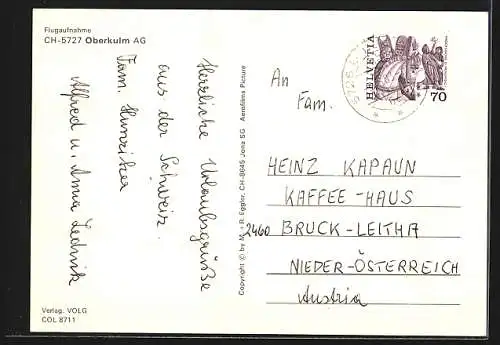 Flugaufnahme
CH-5727 Oberkulm AG
Herzliche Urlaubsgrüße
aus der Schweiz.
Fam. Hunziker
Alfred u. Anna Lednik
Verlag. VOLG
COL 8711
Copyright © by M. + R. Eggler, CH-8645 Jona SG Aerofilms Picture
HELVETIA
70
An
Fam.
HEINZ KAPAUN
KAFFEE-HAUS
2460 BRUCK-LEITHA
NIEDER-ÖSTERREICH
Austria